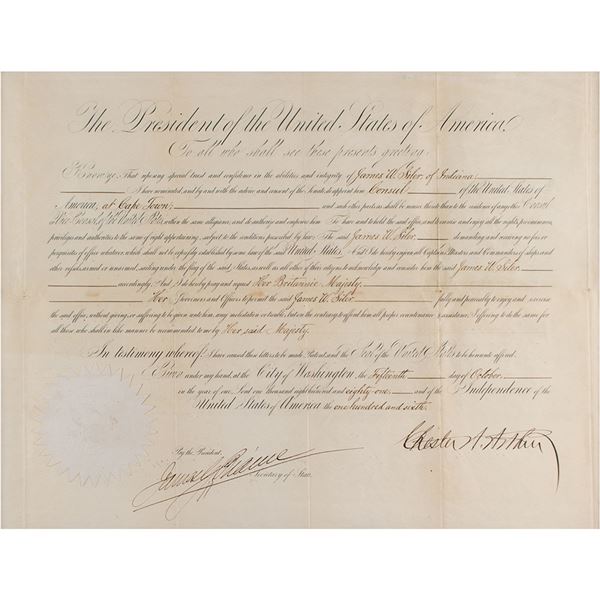 The President of the United States of America,
To all who shall see these presents, greeting:
Know ye; That reposing special trust and confidence in the abilities and integrity of James W. Siler, of Indiana,
I have nominated, and by and with the advice and consent of the Senate, do appoint him Consul of the United States of
America, at Cape Town; and such other parts as shall be nearer thereto than to the residence of any other Consul
or Vice Consul of the United States, within the same allegiance; and do authorize and empower him To have and to hold the said office, and to exercise and enjoy all the rights, preeminences,
privileges and authorities to the same of right appertaining, subject to the conditions prescribed by law; The said James W. Siler demanding and receiving no fees or
perquisites of office whatever, which shall not be expressly established by some law of the said United States. And I do hereby enjoin all Captains, Masters and Commanders of ships and
other vessels, armed or unarmed, sailing under the flag of the said States, as well as all other of their citizens, to acknowledge and consider him the said James W. Siler
accordingly. And I do hereby pray and request Her Britannic Majesty,
Her Governors and Officers to permit the said James W. Siler fully and peaceably to enjoy and exercise
the said office, without giving or suffering to be given unto him, any molestation or trouble, but on the contrary to afford him all proper countenance and assistance; I offering to do the same for
all those who shall in like manner be recommended to me by Her said Majesty.
In testimony whereof, I have caused these letters to be made Patent and the Seal of the United States to be hereunto affixed.
Given under my hand, at the City of Washington, the Fifteenth day of October
in the year of our Lord one thousand eight hundred and eighty-one and of the Independence of the
United States of America, the one hundred and sixth.
Chester A. Arthur
By the President,
James G. Blaine
Secretary of State.